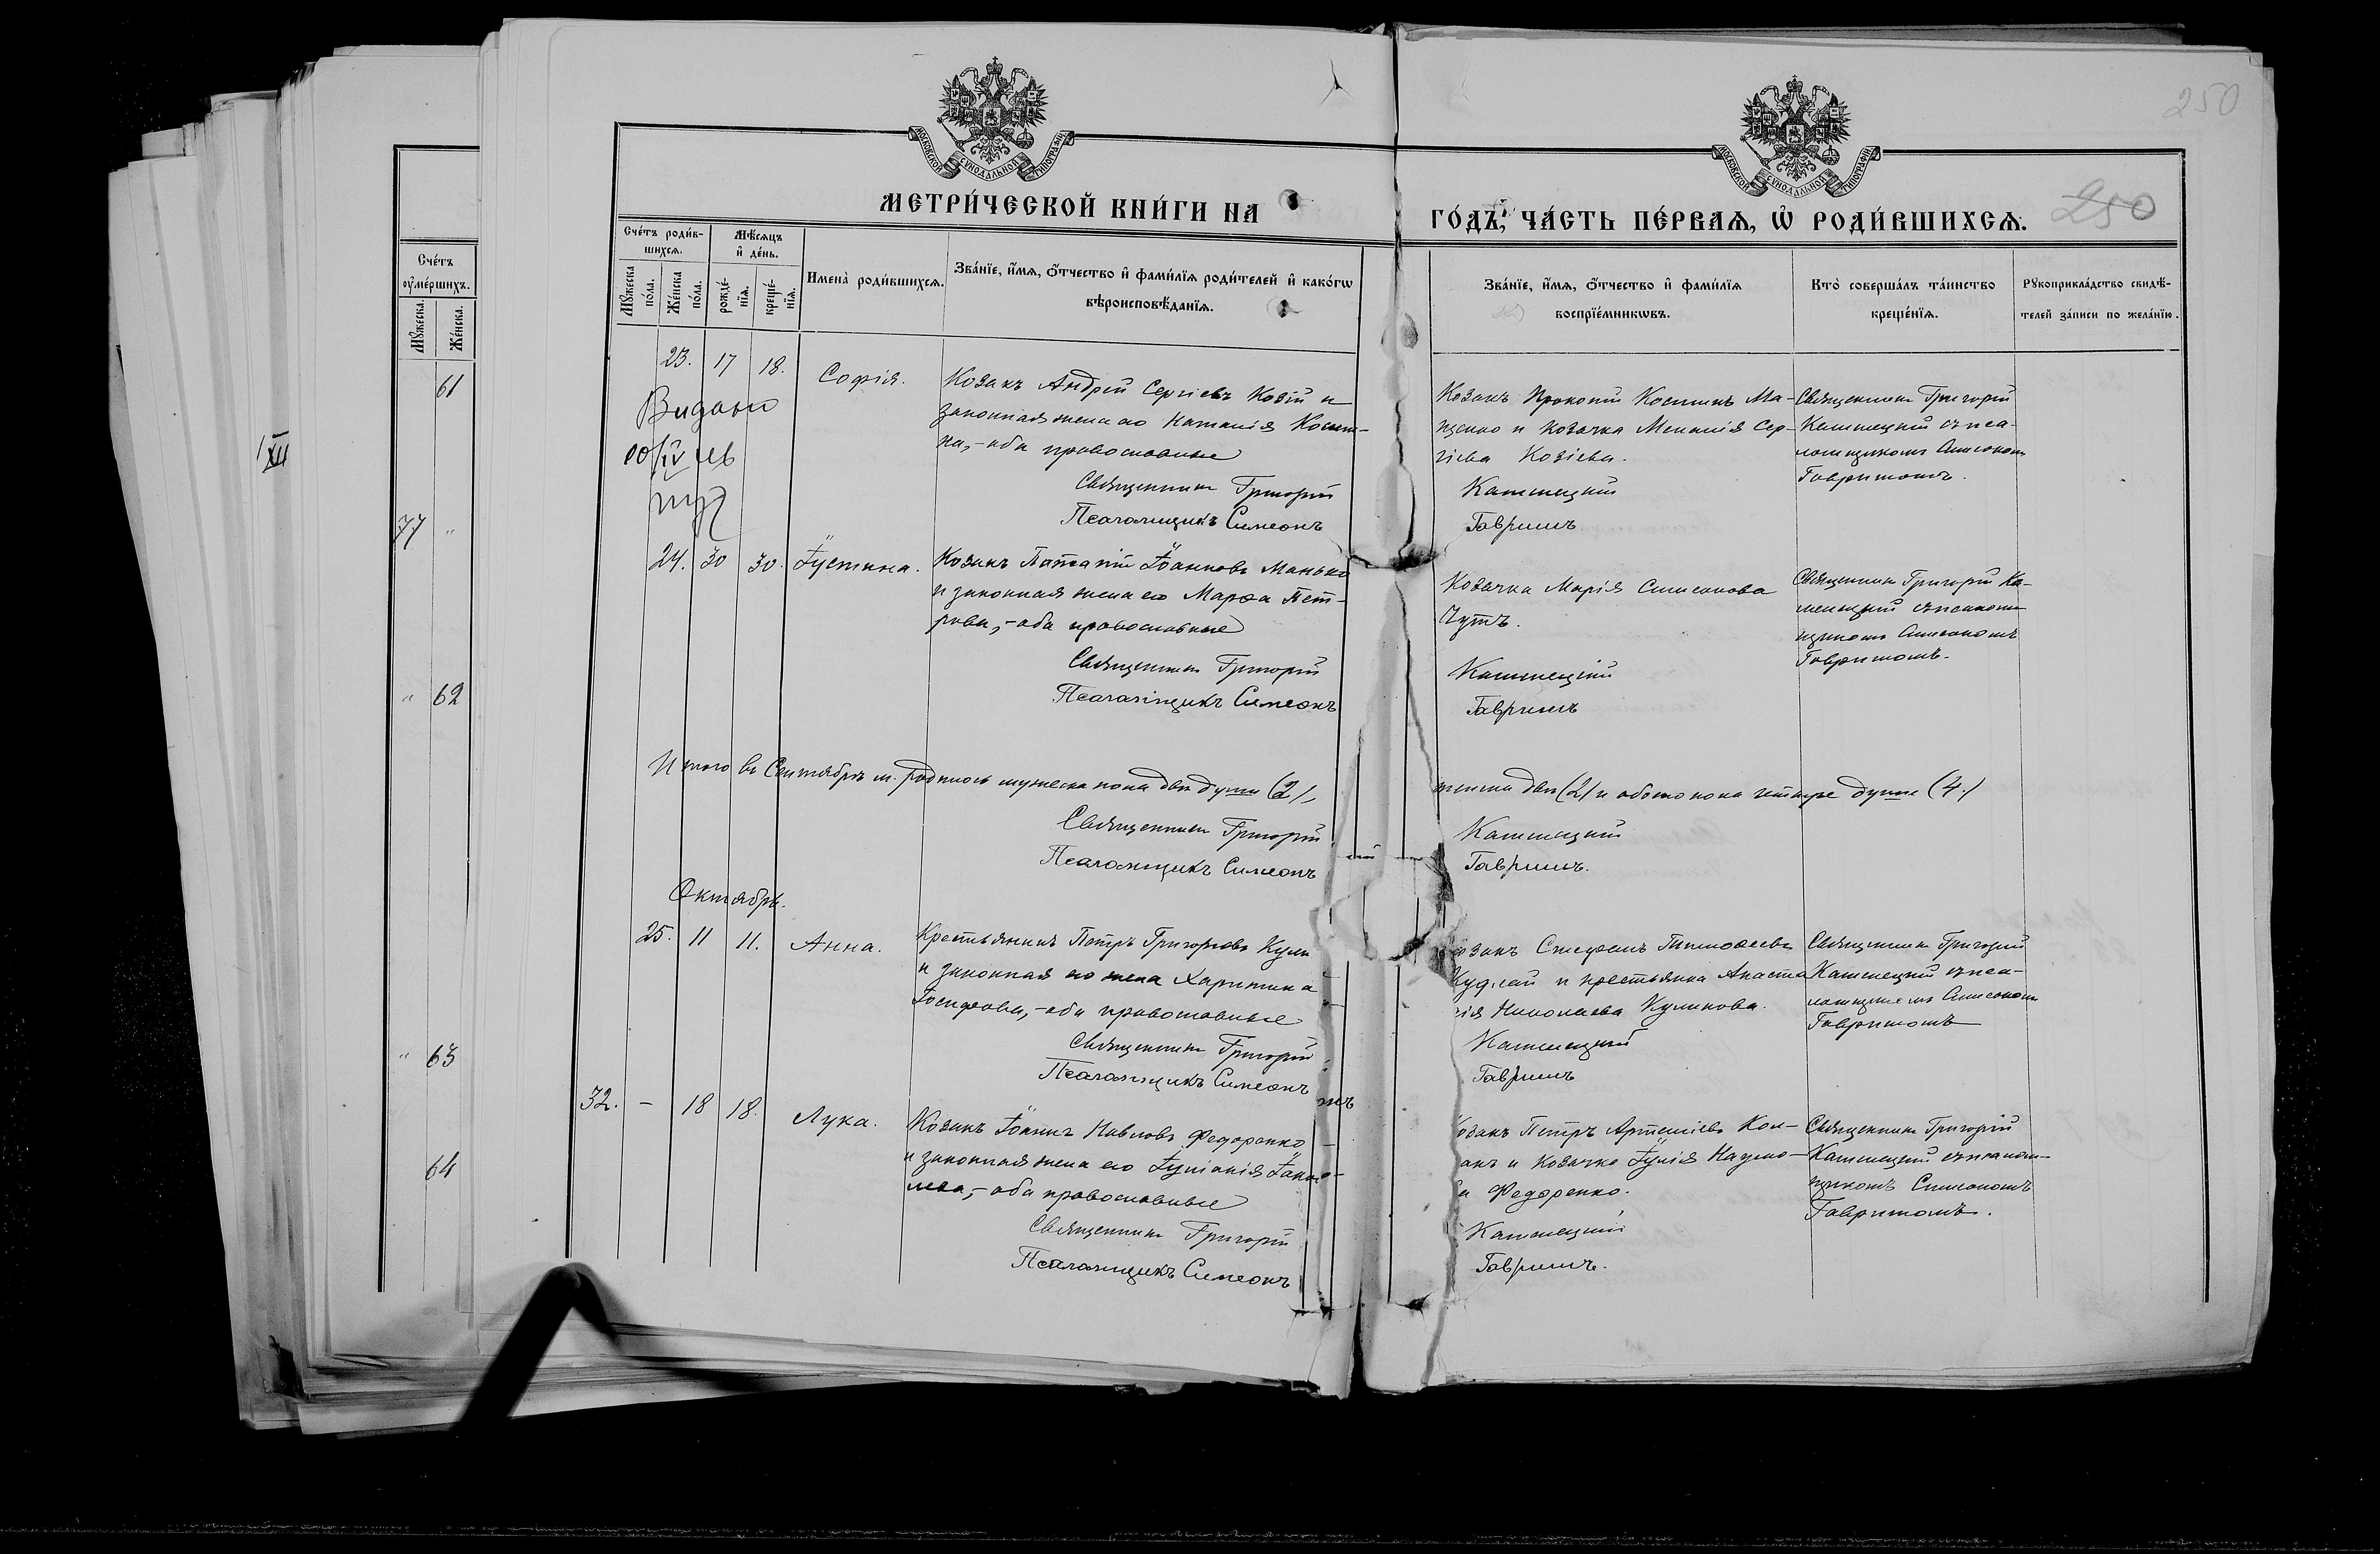 250
МОСКОВСКОЙ СУНОДАЛЬНОЙ ТИПОГРАФІИ
МОСКОВСКОЙ СУНОДАЛЬНОЙ ТИПОГРАФІИ
МЕТРИ́ЧЕСКОЙ КНИ́ГИ НА
ГО́ДЪ, ЧА́СТЬ ПЕ́РВАѦ, Ѽ РОДИ́ВШИХСѦ.
250
Сче́тъ
ᲂу҆ме́ршихъ.
Мꙋ́жеска.
Же́нска.
61
77 "
" 62
" 63
64
XII
Сче́тъ роди́в-
шихсѧ.
Мѣ́сѧцъ
и҆ де́нь.
Мꙋ́жеска
по́ла.
Же́нска
по́ла.
рожде́-
нїѧ.
креще́-
нїѧ.
Имена̀ роди́вшихсѧ.
Зва́нїе, и҆́мѧ, ѻ҆́тчество и҆ фами́лїѧ роди́телей и҆ како́гѡ
вѣроисповѣ́данїѧ.
Зва́нїе, и҆́мѧ, ѻ҆́тчество и҆ фами́лїѧ
воспрїе́мникѡвъ.
Кто̀ соверша́лъ та́инство
креще́нїѧ.
Рꙋкоприкла́дство свидѣ́-
телей за́писи по жела́нїю.
23. 17 18. Софія.
Козакъ Андрей Сергіевъ Козій и
законная жена его Наталія Косьми-
на,- оба православные
Священникъ Григорій
Псаломщикъ Симеонъ
Козакъ Прокопій Косминъ Ма-
ценко и козачка Меланія Сер-
гіева Козіева.
Каменецкій
Гавришъ
Священникъ Григорій
Каменецкій съ пса-
ломщикомъ Симеономъ
Гавришомъ.
Видано
24. 30 30. Іустина.
Козакъ Потапій Іоанновъ Манько
и законная жена его Марѳа Пет-
рова,- оба православные
Священникъ Григорій
Псаломщикъ Симеонъ
Козачка Марія Симеонова
Чутъ.
Каменецкій
Гавришъ
Священникъ Григорій Ка-
менецкій съ псалом-
щикомъ Симеономъ
Гавришомъ.
Итого въ Сентябрѣ м. родилось мужеска пола двѣ души (2),
женска двѣ (2) и обоего пола четыре души (4.)
Священникъ Григорій
Псаломщикъ Симеонъ
Каменецкій
Гавришъ.
Октябрь.
25. 11 11. Анна.
Крестьянинъ Петръ Григорьевъ
и законная его жена Харитина
Іосифова,- оба православные
Священникъ Григорій
Псаломщикъ Симеонъ
озакъ Стефанъ Тимоѳеевъ
Кудлай и крестьянка Анаста
сія Николаева Куликова.
Каменецкій
Гавришъ
Священникъ Григорій
Каменецкій съ пса-
ломщикомъ Симеономъ
Гавришомъ
32. - 18 18. Лука.
Козакъ Іоаннъ Павловъ Федоренко
и законная жена его Іуліанія
оба православные
Священникъ Григорій
Псаломщикъ Симеонъ
озакъ Петръ Артеміевъ Кол-
акъ и козачка Іулія Наумо-
а Федоренко.
Каменецкій
Гавришъ.
Священникъ Григорій
Каменецкій съ псалом-
щикомъ Симеономъ
Гавришомъ.